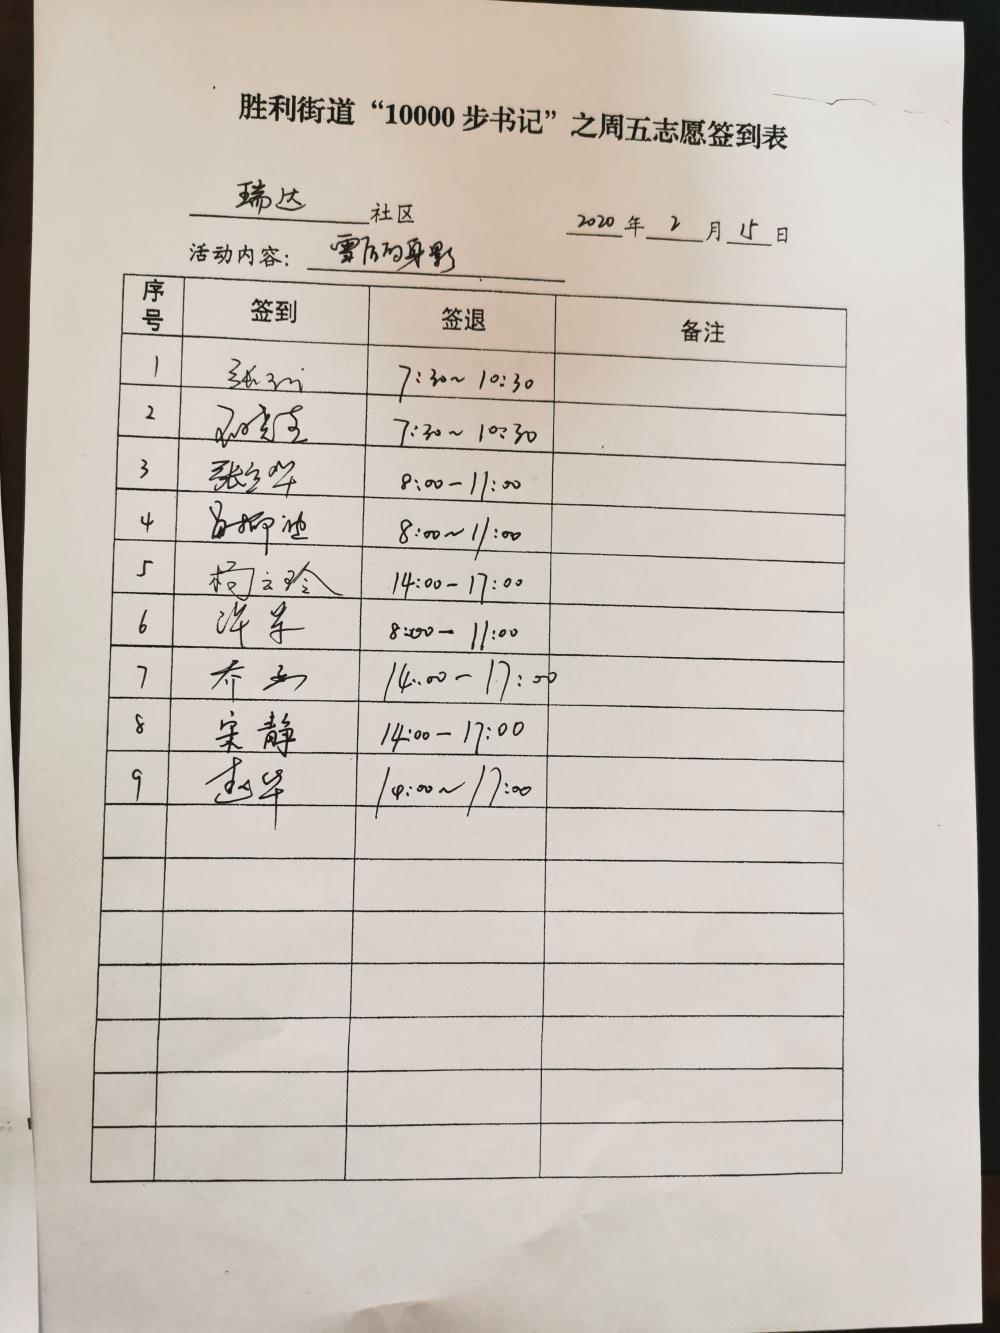 胜利街道“10000步书记”之周五志愿签到表
瑞达社区 2020年2月15日
活动内容：雪后的身影
序号 签到 签退 备注
1 7:30~10:30
2 7:30~10:30
3 张立华 8:00-11:00
4 8:00~11:00
5 杨立玲 14:00-17:00
6 8:00-11:00
7 乔 14:00-17:00
8 宋静 14:00-17:00
9 14:00~17:00